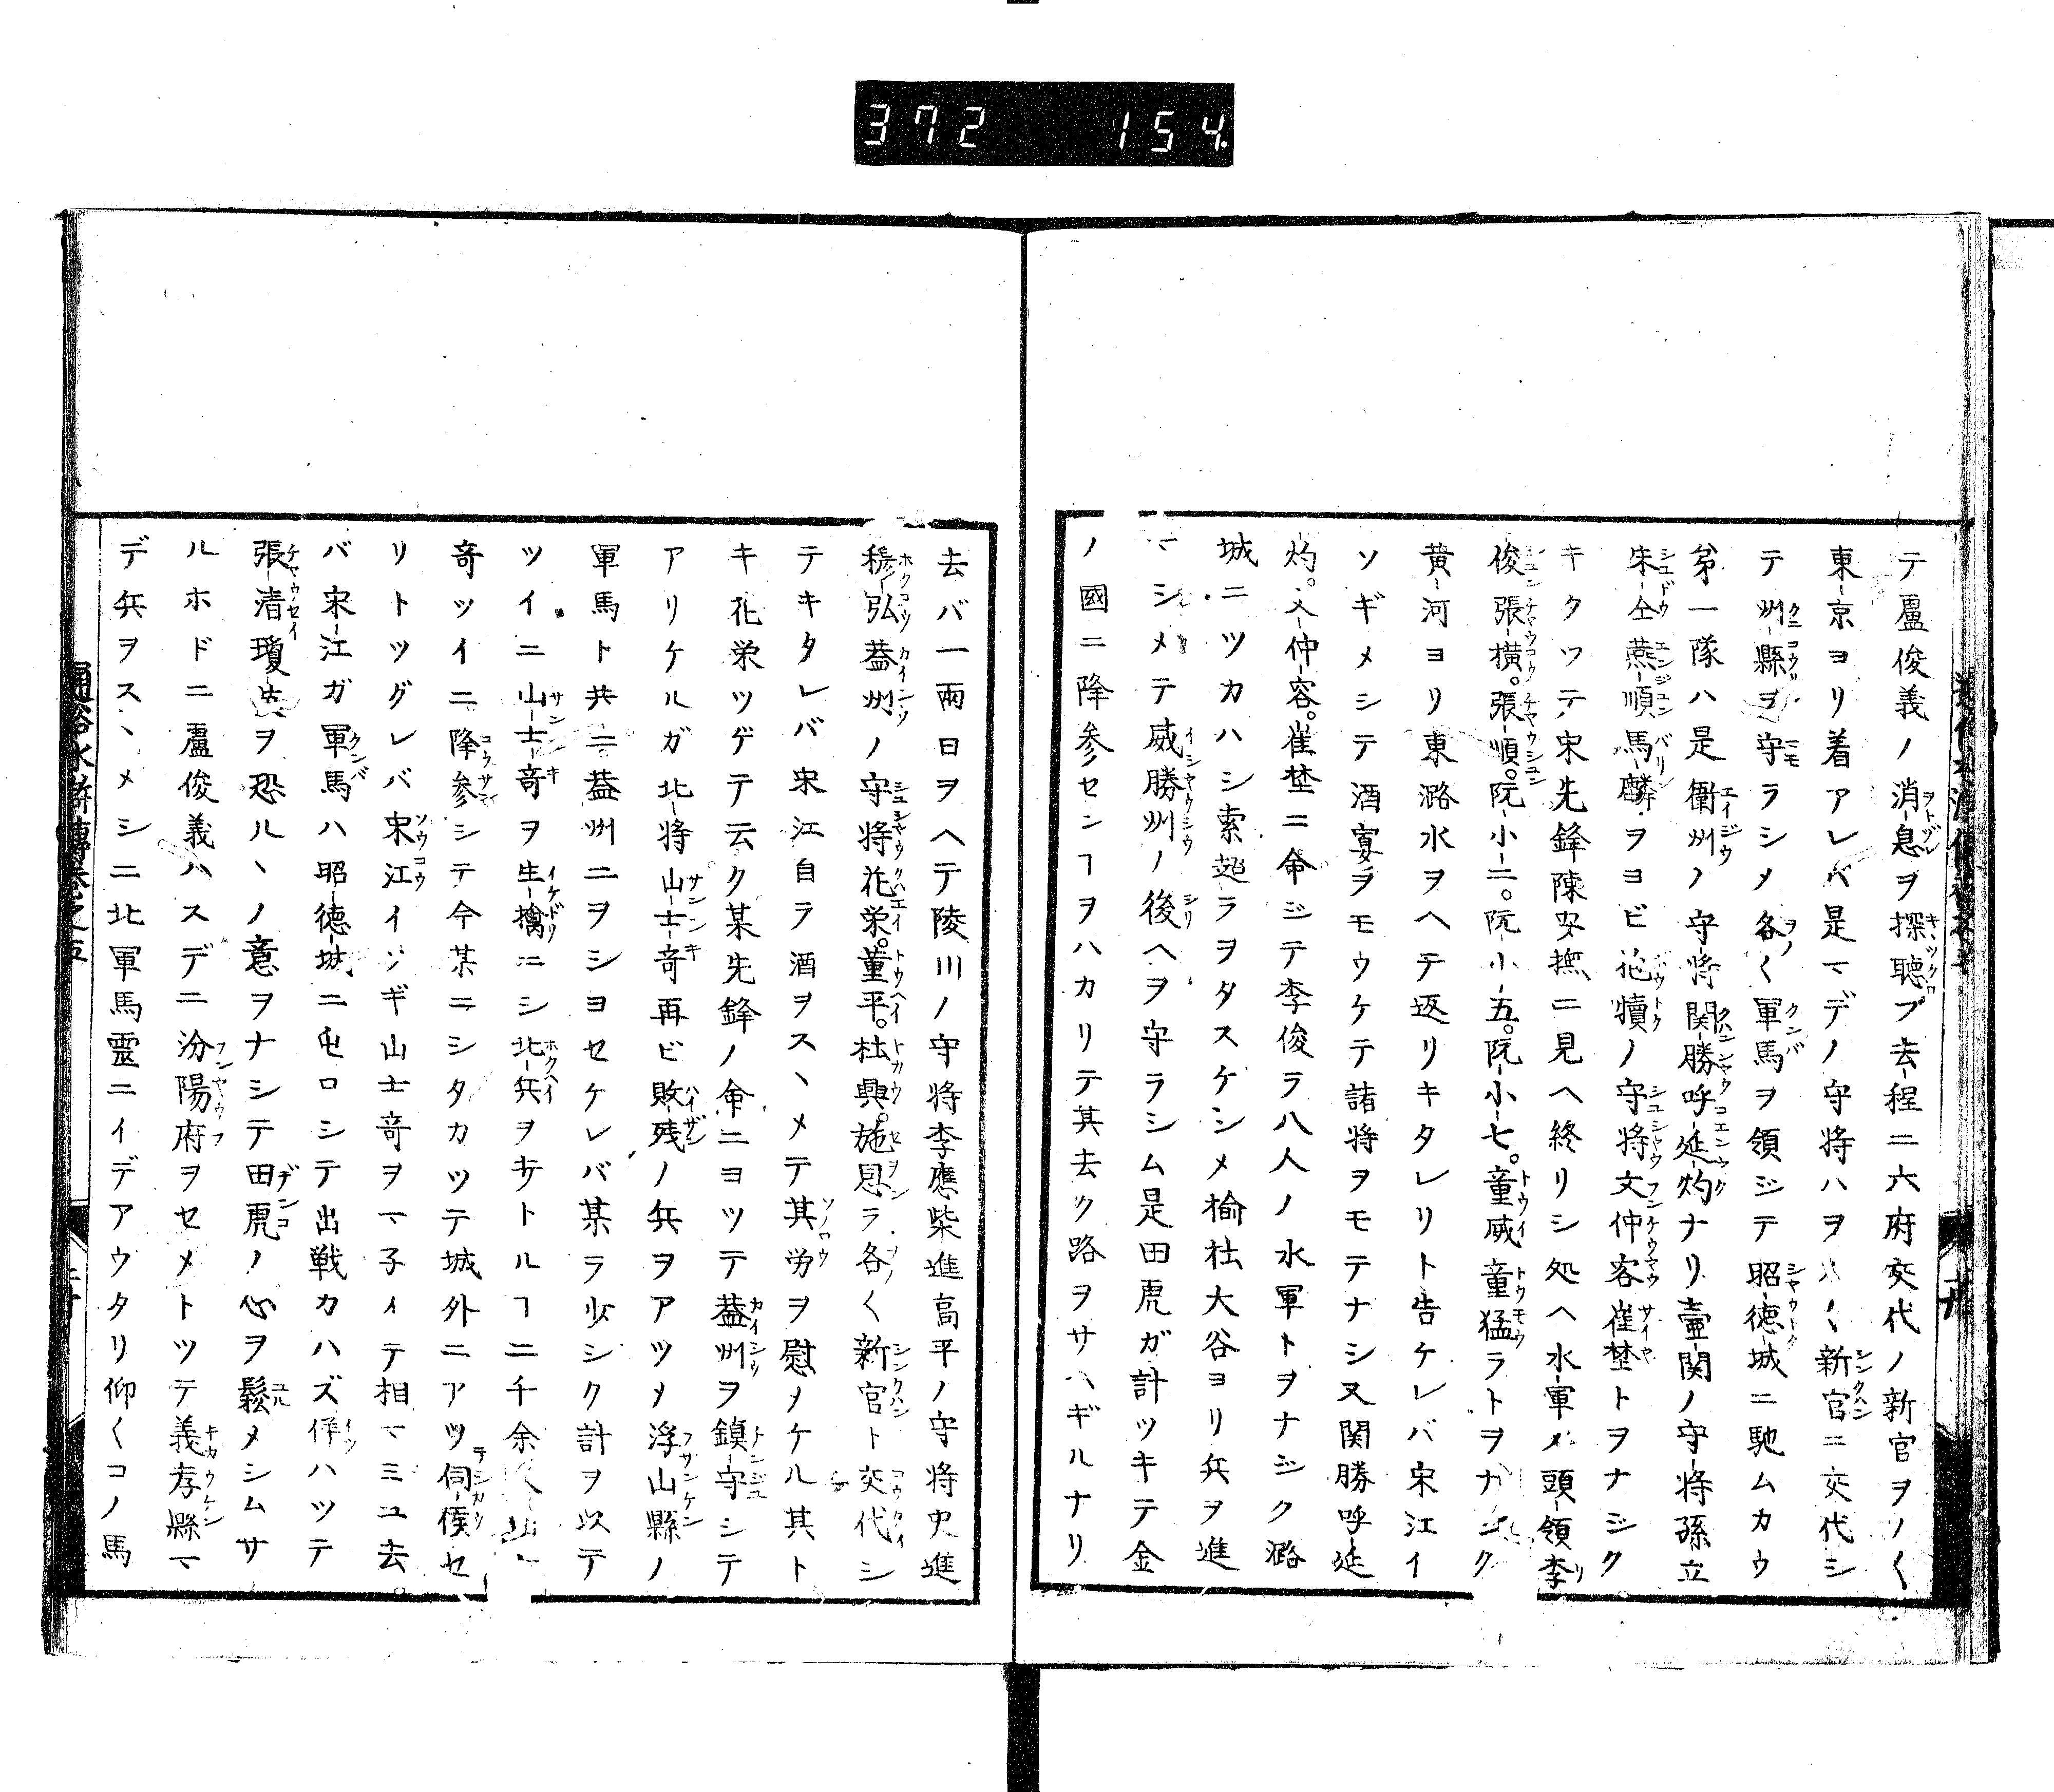 372 154.
テ盧俊義ノ消息ヲ探聴ブ去程ニ六府交代ノ新官ヲノ〱
東京ヨリ着アレバ是マデノ守将ハヲノ〱新官ニ交代シ
テ州縣ヲ守ラシメ各〱軍馬ヲ領ジテ昭德城ニ馳ムカウ
第一隊ハ是衞州ノ守将関勝呼延灼ナリ壷関ノ守将孫立
朱仝燕順馬麟ヲヨビ抱犢ノ守将文仲容崔埜トヲナジク
キタツテ宋先鋒陳安撫ニ見ヘ終リシ処ヘ水軍ノ頭領李
俊張横。張順。阮小二。阮小五。阮小七。童威童猛ラトヲナジク
黄河ヨリ東潞水ヲヘテ返リキタレリト告ケレバ宋江イ
ソギメシテ酒宴ヲモウケテ諸将ヲモテナシ又関勝呼延
灼。文仲容。崔埜ニ命ジテ李俊ラ八人ノ水軍トヲナジク潞
城ニツカハシ索超ラヲタスケシメ楡社大谷ヨリ兵ヲ進
マシメテ威勝州ノ後ヘヲ守ラシム是田虎ガ計ツキテ金
ノ國ニ降参センヿヲハカリテ其去ク路ヲサヘギルナリ
去バ一兩日ヲヘテ陵川ノ守将李應柴進高平ノ守将史進
穆弘蓋州ノ守将花栄。董平。杜興。施恩ラ各〱新官ト交代シ
テキタレバ宋江自ラ酒ヲスヽメテ其労ヲ慰メケル其ト
キ花栄ツゲテ云ク某先鋒ノ命ニヨツテ蓋州ヲ鎮守シテ
アリケルガ北将山士奇再ビ敗残ノ兵ヲアツメ浮山縣ノ
軍馬ト共ニ蓋州ニヲシヨセケレバ某ラ少シク計ヲ以テ
ツイニ山士奇ヲ生擒ニシ北兵ヲキトルヿ二千余人山士
奇ツイニ降参シテ今某ニシタカツテ城外ニアツ伺候セ
リトツグレバ宋江イソギ山士奇ヲマ子イテ相マミユ去。
バ宋江ガ軍馬ハ昭德城ニ屯ロシテ出戦カハズ佯ハツテ
張清瓊英ヲ恐ルヽノ意ヲナシテ田虎ノ心ヲ鬆メシムサ
ルホドニ盧俊義ハスデニ汾陽府ヲセメトツテ義孝縣マ
デ兵ヲスヽメシニ北軍馬靈ニイデアウタリ仰〱コノ馬
通俗水滸傳巻之五